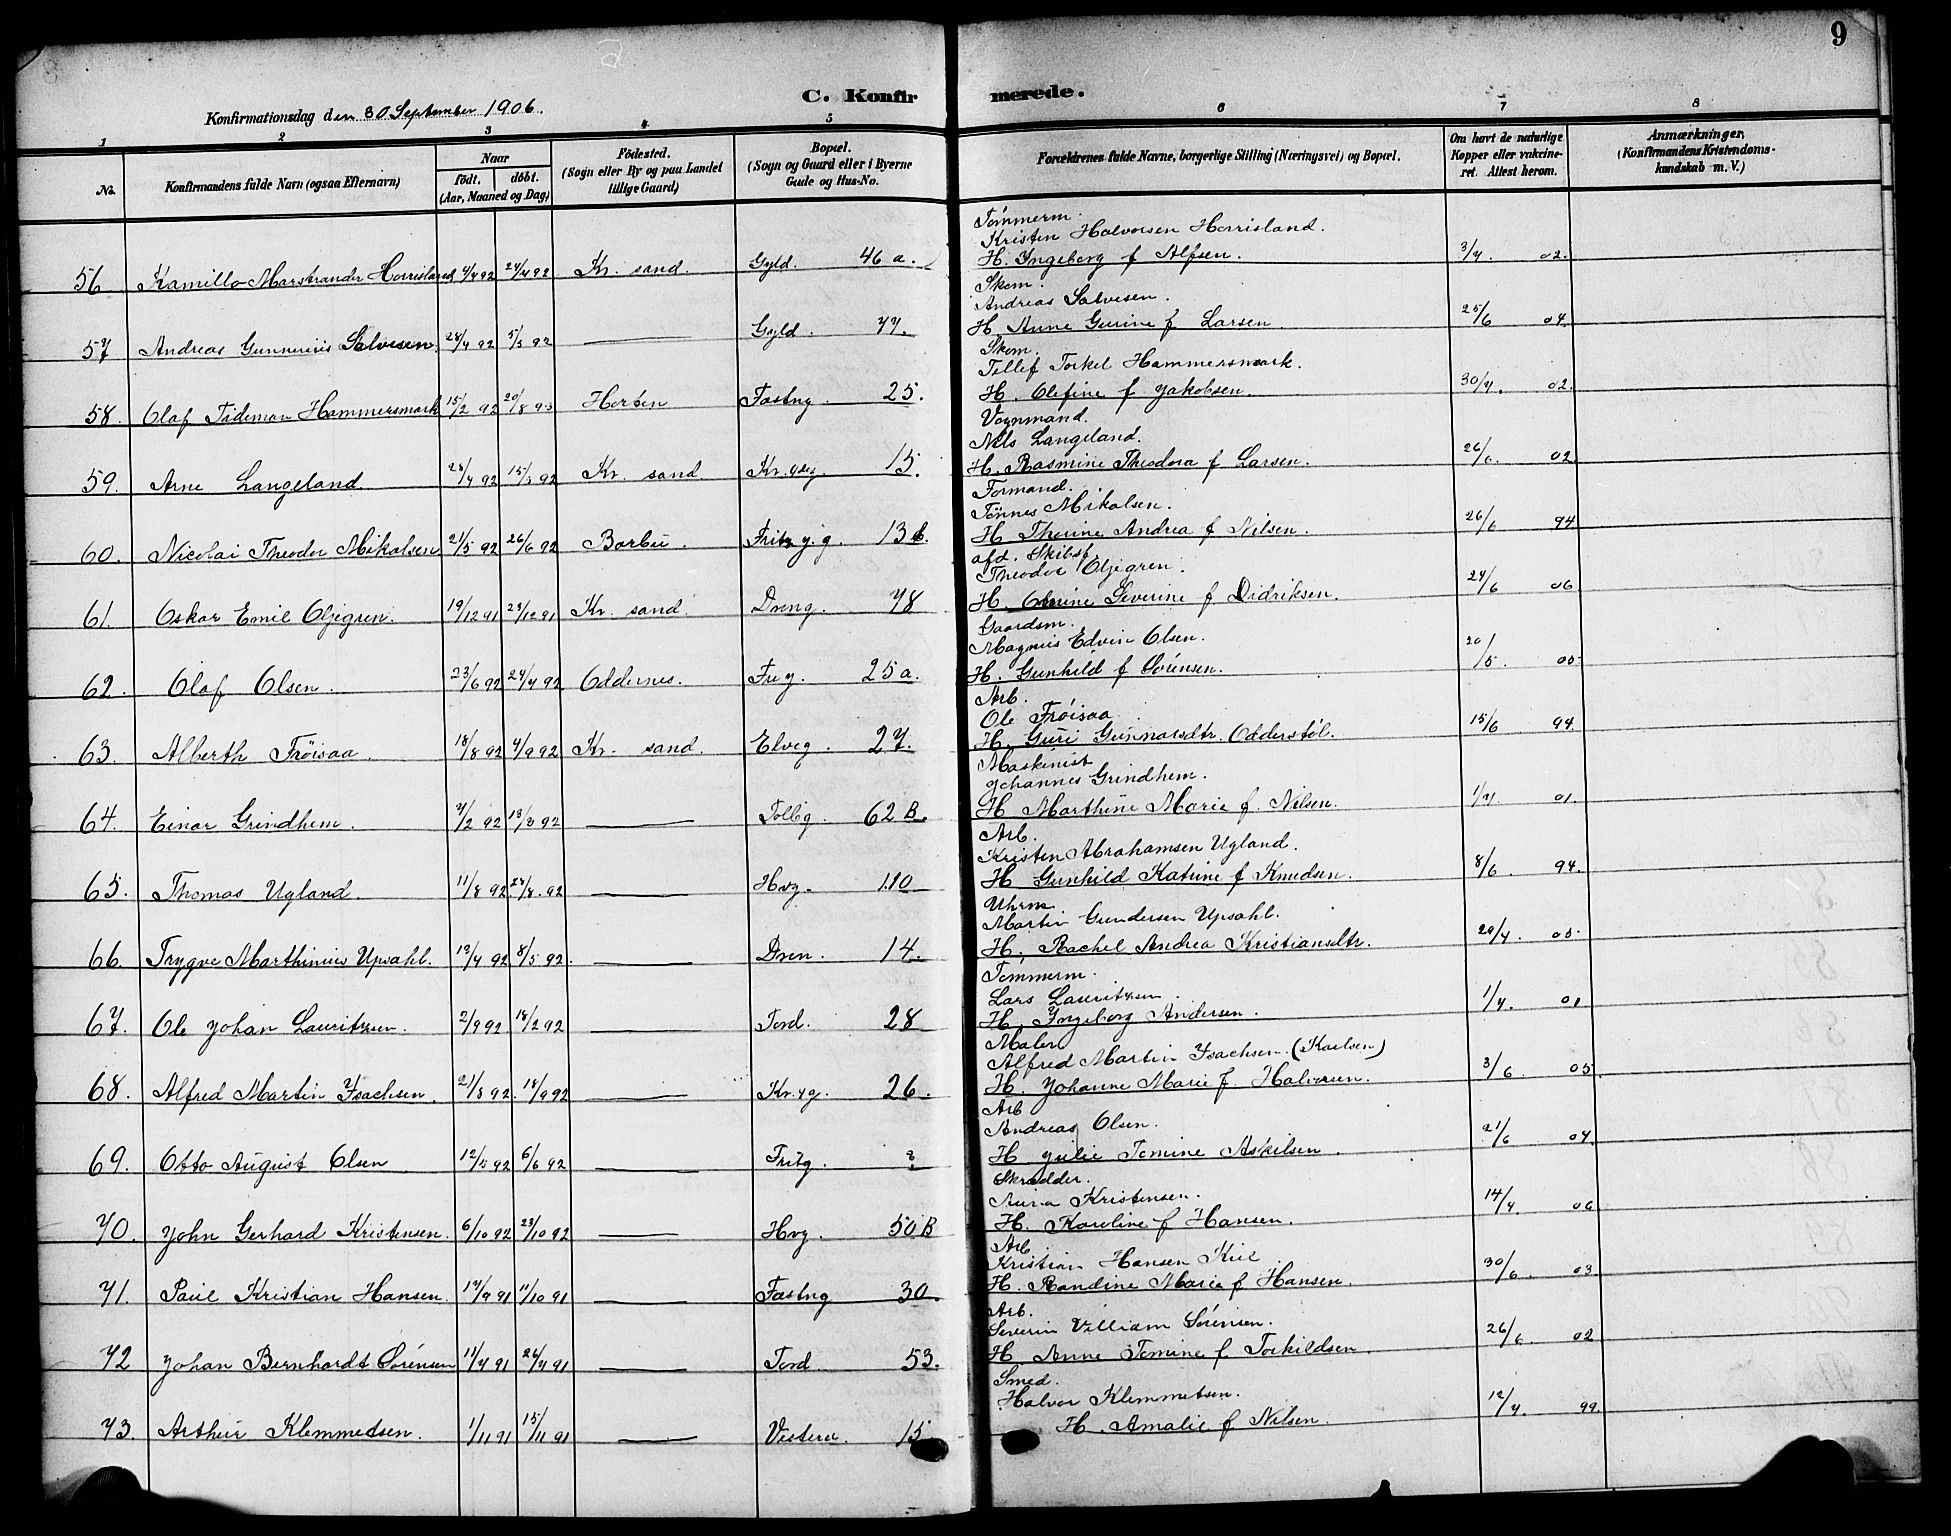 9
C. Konfirmerede.
Konfirmationsdag den 30 September 1906.
1 2 3 4 5 6 7 8
No. Konfirmandens fulde Navn (ogsaa Efternavn) Naar födt. döbt. (Aar, Maaned og Dag) Födested. (Sogn eller By og paa Landet tillige Gaard) Bopæl. (Sogn og Gaard eller i Byerne Gade og Hus-No. Forældrenes fulde Navne, borgerlige Stilling (Næringsvei) og Bopæl. Om havt de naturlige Kopper eller vakcineret. Attest herom. Anmærkninger. (Konfirmandens Kristendomskundskab m. V.)
Tömmerm.
Kristen Halvorsen Horrisland.
56 Kamillo Marstrander Horrisland 24/4 92 Kr. sand. Gyld. 46 a. H. Ingeborg f Alfsen. 3/7. 02.
Skom.
Andreas Salvesen.
57 Andreas Gunnerius Salvesen. 28/4 92 5/5 92 Gyld. 77. H. Anne Gurine f Larsen. 25/6 04.
Skom.
Tellef Torkel Hammersmark.
58. Olaf Tideman Hammersmark 15/2 92 Horten Fæstng. 25. H. Olefine f Jakobsen. 30/7. 02.
Vognmand.
Nils Langeland.
59. Arne Langeland 15/5 92 Kr. sand. 15. H. Rasmine Theodora f Larsen. 26/6. 02.
Formand.
Tönnes Mikalsen.
60. Nicolai Theodor Mikalsen 21/5 92 26/6 92 Barbu. 13 b. H Thorine Andrea f Nilsen. 26/6 94
afd. Skibsf.
Theodor Oljegren.
61. Oskar Emil Oljegren. 19/12 91 28/12 91 Kr. sand. Dreng. 78 H. Severine f Didriksen. 24/6 06
Gaardsm.
Magnus Edvin Olsen.
62. Olaf Olsen. 23/6 92 24/7 92 Oddernes. Freg. 25 a. H. Gunhild f Sörensen. 20/5. 05.
Arb.
Ole Fröisaa
63. Alberth Fröisaa. 18/8 92 4/9 92 Kr. sand. Elveg. 27. H. Guri Gunnarsdtr. Odderstöl. 15/6 94.
Maskinist
Johannes Grindhem.
64. Einar Grindhem. 7/2 92 13/3 92 Tolbg. 62 B. H. Marthine Marie f. Nilsen. 1/7. 01.
Arb.
Kristen Abrahamsen Ugland.
65. Thomas Ugland. 11/8 92 28/8. 92 Hvg. 110 H Gunhild Katrine f Knudsen. 8/6. 94.
Uhrm.
Martin Gundersen Upsahl.
66. Trygve Marthinius Upsahl. 13/4 92 8/5 92. Dren. 14. H. Rachel Andrea Kristiansdtr. 29/4. 05.
Tömmerm.
Lars Lauritzsen.
67. Ole Johan Lauritzsen. 2/9 92 Tord. 28 H. Ingeborg Andersen. 1/7. 01
Maler
Alfred Martin Isachsen. (Karlsen)
68. Alfred Martin Isachsen. 21/8 92. 18/9 92 26. H. Johanne Marie f. Halvorsen. 3/6. 05.
Arb
Andreas Olsen.
69. Otto August Olsen 12/5 92 6/6 92 Fritzg. ? H Julie Tomine Askilsen. 21/6 04.
Skrædder.
Kristensen.
70. John Gerhard Kristensen. 6/10 92 23/10 92 Hvg. 50 B H. Karoline f Hansen. 14/7. 06
Arb
Kristian Hansen Kiil
71. Paul Kristian Hansen. 17/9 91 11/10 91 Fæstng 30. H. Randine Marie f Hansen. 30/6. 03.
Arb.
Severin Villiam Sörensen.
72 Johan Bernhardt Sörensen 11/7 91 26/7 91 Tord. 53. H. Anne Tomine f Torkildsen. 26/6 02
Smed.
Halvor Klemmetsen.
73. Arthur Klemmetsen. 1/11 91 15/11 91 Vestera. 15 H. Amalie f Nilsen. 12/7. 99.